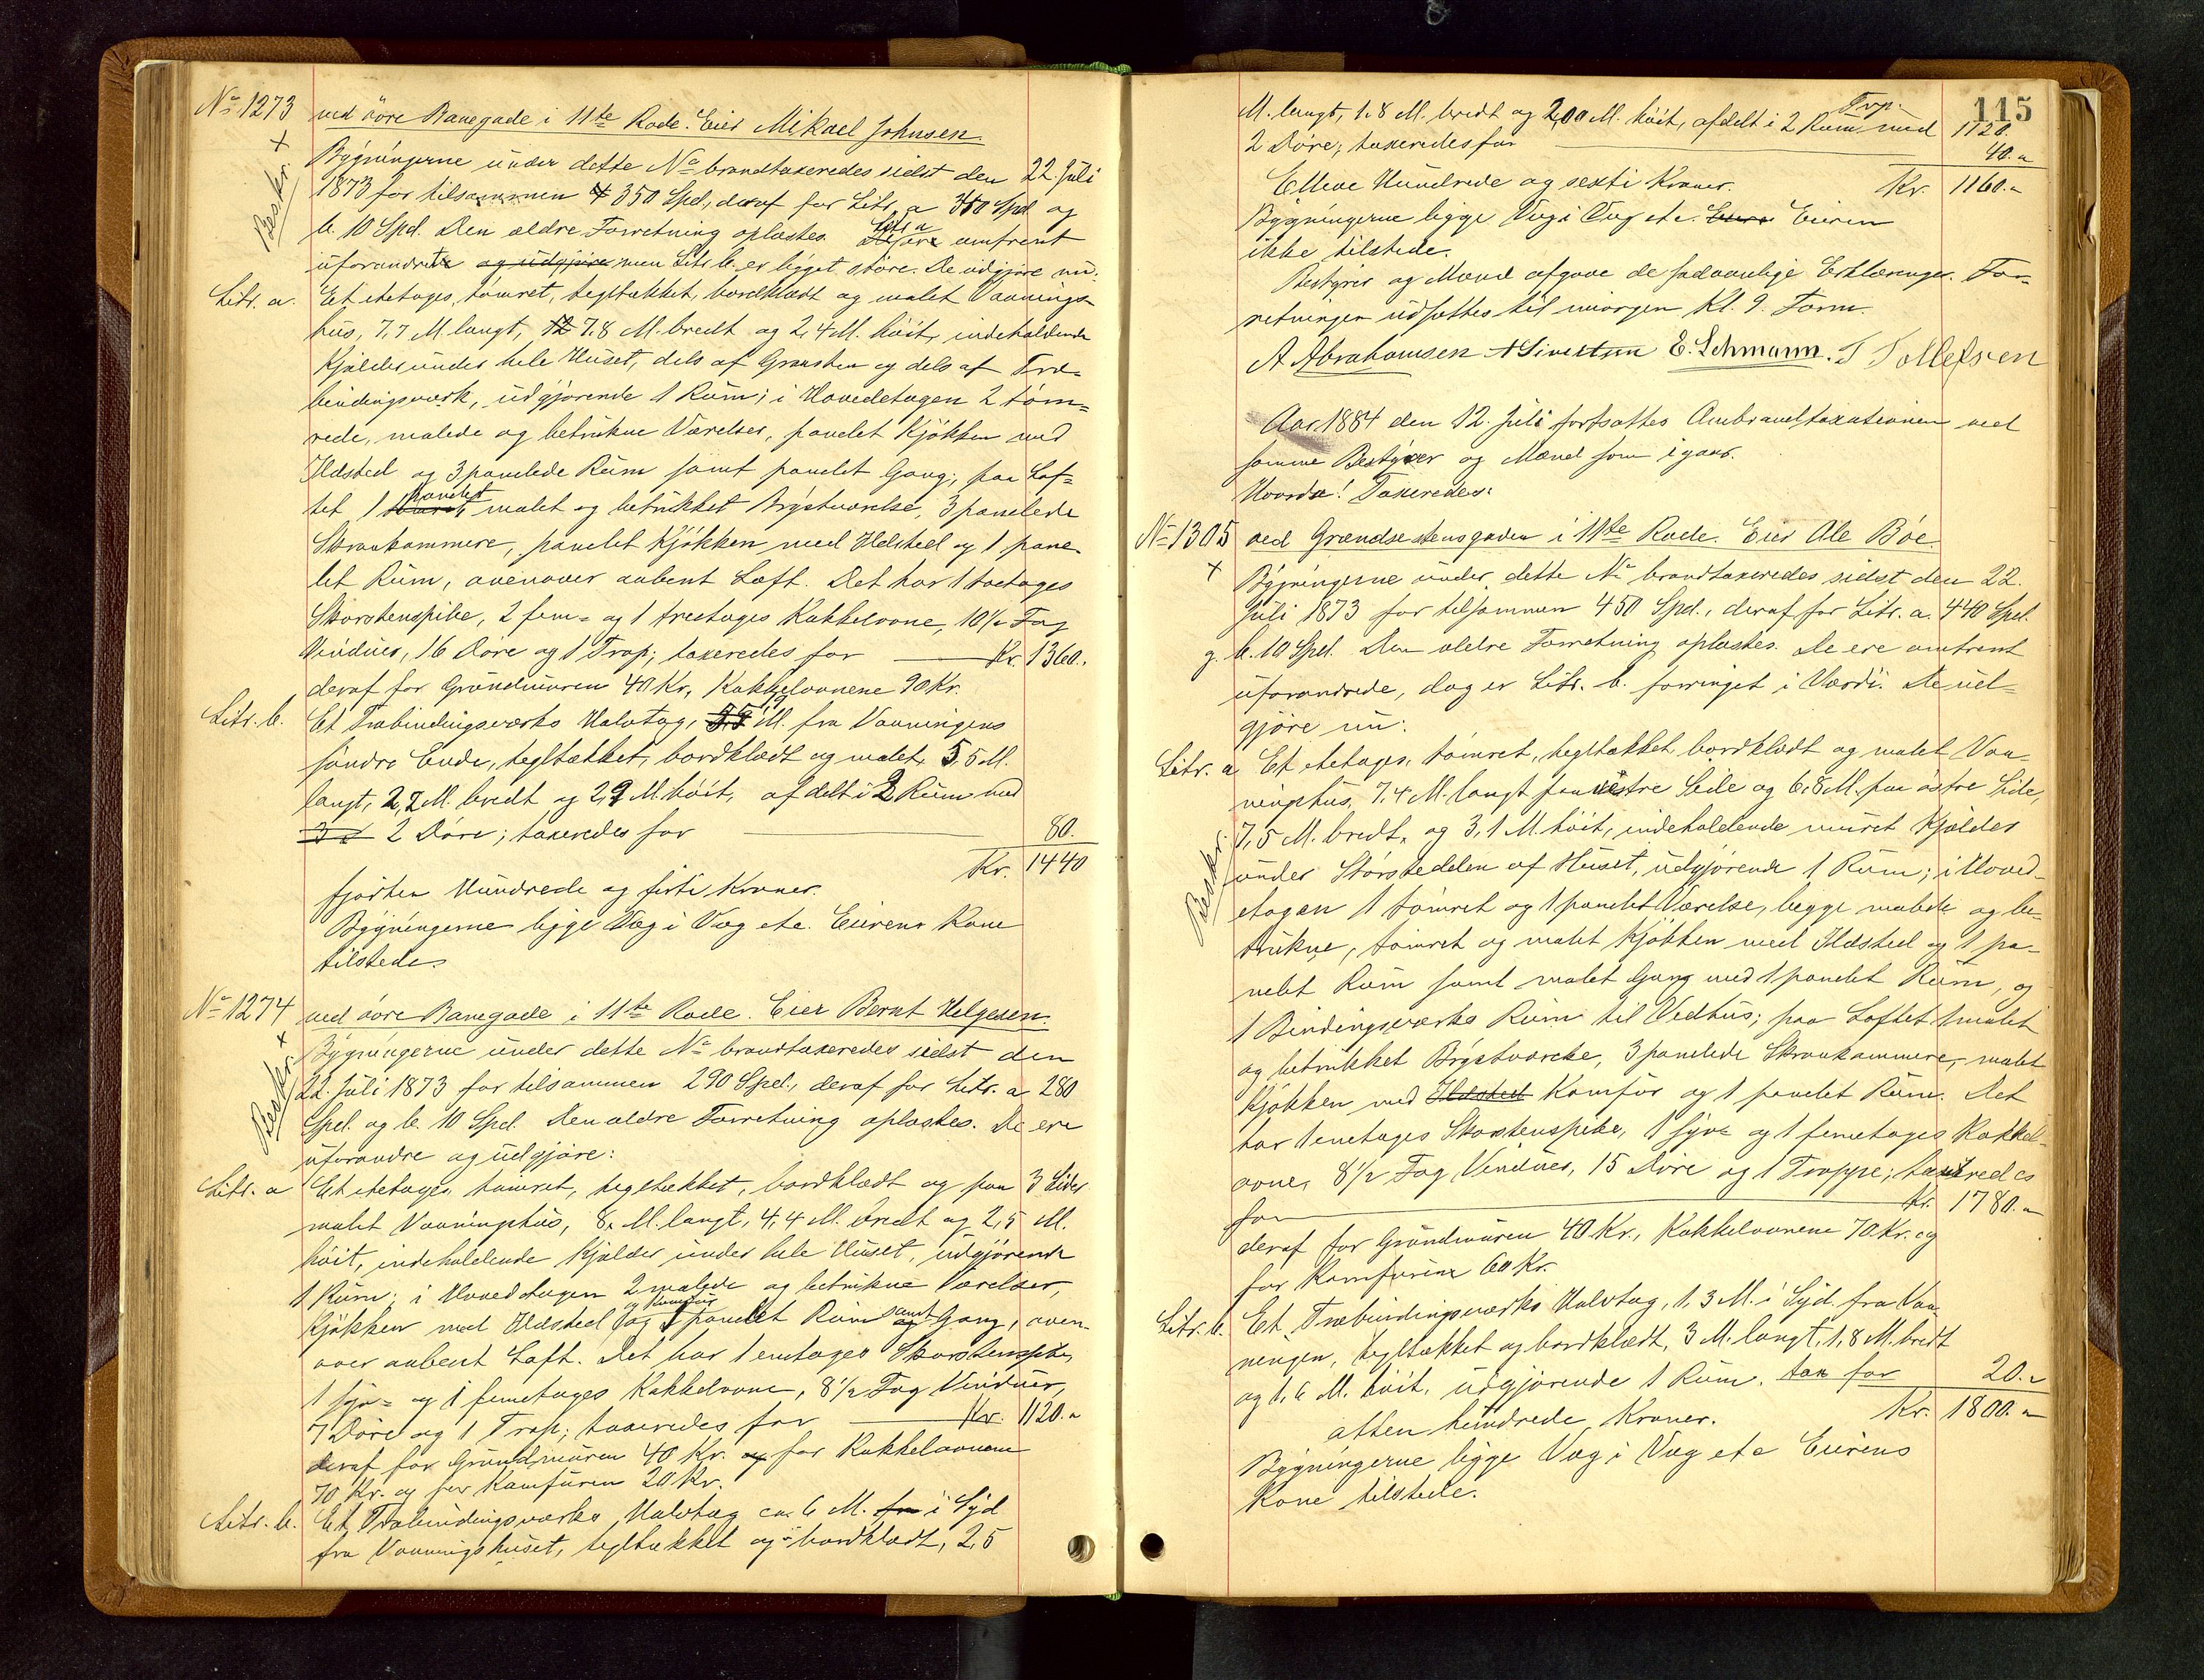 No 1273 ved øvre Banegade i 11te Rode. Eier Mikael Johnsen.
Beskr. ×
Bygningerne under dette No brandtaxeredes sidst den 22. Juli
1873 for tilsammen 350 Spd., deraf for Litr. a 340 Spd. og
b. 10 Spd. Den ældre Forretning oplæstes. Litr. a omtrent
uforandret og udgjøre men Litr. b. er bygget større. De udgjøre nu:
Litr. a. Et etetages, tømret, tegltækket, bordklædt og malet Vaanings-
hus, 7,7 M. langt, 7,8 M. bredt og 2,4 M. høit, indeholdende
Kjælder under hele Huset, dels af Graasten og dels af Træ-
bindingsværk, udgjørende 1 Rum; i Hovedetagen 2 tøm-
rede, malede og betrukne Værelser, panelet Kjøkken med
Ildsted og 3 panelede Rum samt panelet Gang; paa Lof-
tet 1 panelet malet og betrukket Brystværelse, 3 panelede
Skraakammere, panelet Kjøkken med Ildsted og 1 pane-
let Rum, ovenover aabent Loft. Det har 1 toetages
Skorstenspibe, 2 fem- og 1 treetages Kakkelovne, 10½ Fag
Vinduer, 16 Døre og 1 Trap; taxeredes for Kr. 1360.
deraf for Grundmuren 40 Kr., Kakkelovnene 90 Kr.
Litr. b. Et Træbindingsværks Halvtag, M. fra Vaaningens
søndre Ende, tegltækket, bordklædt og malet, 5,5 M.
langt, 2,7 M. bredt og 2,2 M. høit, afdelt i 2 Rum med
2 Døre; taxeredes for 80.
Kr. 1440
fjorten Hundrede og firti Kroner.
Bygningerne ligge Væg i Væg etc. Eierens Kone
tilstede.
No 1274 ved øvre Banegade i 11te Rode. Eier Bernt Helgesen.
Beskr. ×
Bygningerne under dette No brandtaxeredes sidst den
22. Juli 1873 for tilsammen 290 Spd., deraf for Litr. a 280
Spd. og b. 10 Spd. Den ældre Forretning oplæstes. De ere
uforandre og udgjøre:
Litr. a Et etetages tømret, tegltækket, bordklædt og paa 3 Sider
malet Vaaningshus, 8, M. langt, 4,4 M. bredt og 2,5 M.
høit, indeholdende Kjælder under hele Huset, udgjørende
1 Rum; i Hovedetagen 2 malede og betrukne Værelser,
Kjøkken med Ildsted og Komfur og 1 panelet Rum samt Gang, oven-
over aabent Loft. Det har 1 enetages Skorstenspibe,
1 syv- og 1 femetages Kakkelovne, 8½ Fag Vinduer,
7 Døre og 1 Trap; taxeredes for Kr. 1120.
deraf for Grundmuren 40 Kr. og for Kakkelovnene
70 Kr. og for Komfuren 20 Kr.
Litr. b. Et Træbindingsværks Halvtag ca. 6 M. fra i Syd
fra Vaaningshuset, tegltækket og bordklædt, 2,5
115
M. langt, 1,8 M. bredt og 2,00 M. høit, afdelt i 2 Rum med Trp. 1120.
2 Døre; taxeredes for 40.
Elleve Hundrede og sexti Kroner. Kr. 1160.
Bygningerne ligge Væg i Væg etc. Eieren
ikke tilstede.
Bestyrer og Mænd afgave de sædvanlige Erklæringer. For-
retningen udsattes til imorgen Kl. 9. Form.
A Abrahamsen A Sivertsen E. Lehmann. T Tollefsen
Aar 1884 den 12. Juli fortsattes Ombrandtaxationen ved
samme Bestyrer og Mænd som igaar.
Hvorda! Taxeredes:
No 1305 ved Grændsestensgaden i 11te Rode. Eier Ole Bøe.
×
Bygningerne under dette No brandtaxeredes sidst den 22.
Juli 1873 for tilsammen 450 Spd., deraf for Litr. a. 440 Spd.
g. b. 10 Spd. Den ældre Forretning oplæstes. De ere omtrent
uforandrede, dog er Litr. b. forringet i Værdi. De ud-
gjøre nu:
Litr. a Et etetages, tømret, tegltækket, bordklædt og malet Vaa-
ningshus, 7,4 M. langt paa vestre Side og 6,8 M. paa østre Side,
7,5 M. bredt, og 3,1 M. høit, indeholdende muret Kjælder
Beskr.
under Størstedelen af Huset, udgjørende 1 Rum; i Hoved-
etagen 1 tømret og 1 panelet Værelse, begge malede og be-
trukne, tømret og malet Kjøkken med Ildsted og 1 pa-
nelet Rum samt malet Gang med 1 panelet Rum, og
1 Bindingsværks Rum til Vedhus; paa Loftet 1 malet
og betrukket Brystværelse, 3 panelede Skraakammere, malet
Kjøkken med Ildsted Komfur og 1 panelet Rum. Det
har 1 enetages Skorstenspibe, 1 syv- og 1 femetages Kakkel-
ovne, 8½ Fag Vinduer, 15 Døre og 1 Trappe; taxeredes
for Kr. 1780.
deraf for Grundmuren 40 Kr., Kakkelovnene 70 Kr. og
for Komfuren 60 Kr.
Litr. b. Et Træbindingsværks Halvtag, 1,3 M. i Syd fra Vaa-
ningen, tegltækket og bordklædt, 3 M. langt, 1,8 M. bredt
og 1,6 M. høit, udgjørende 1 Rum. tax for 20.
atten hundrede Kroner. Kr. 1800.
Bygningerne ligge Væg i Væg etc Eierens
Kone tilstede.